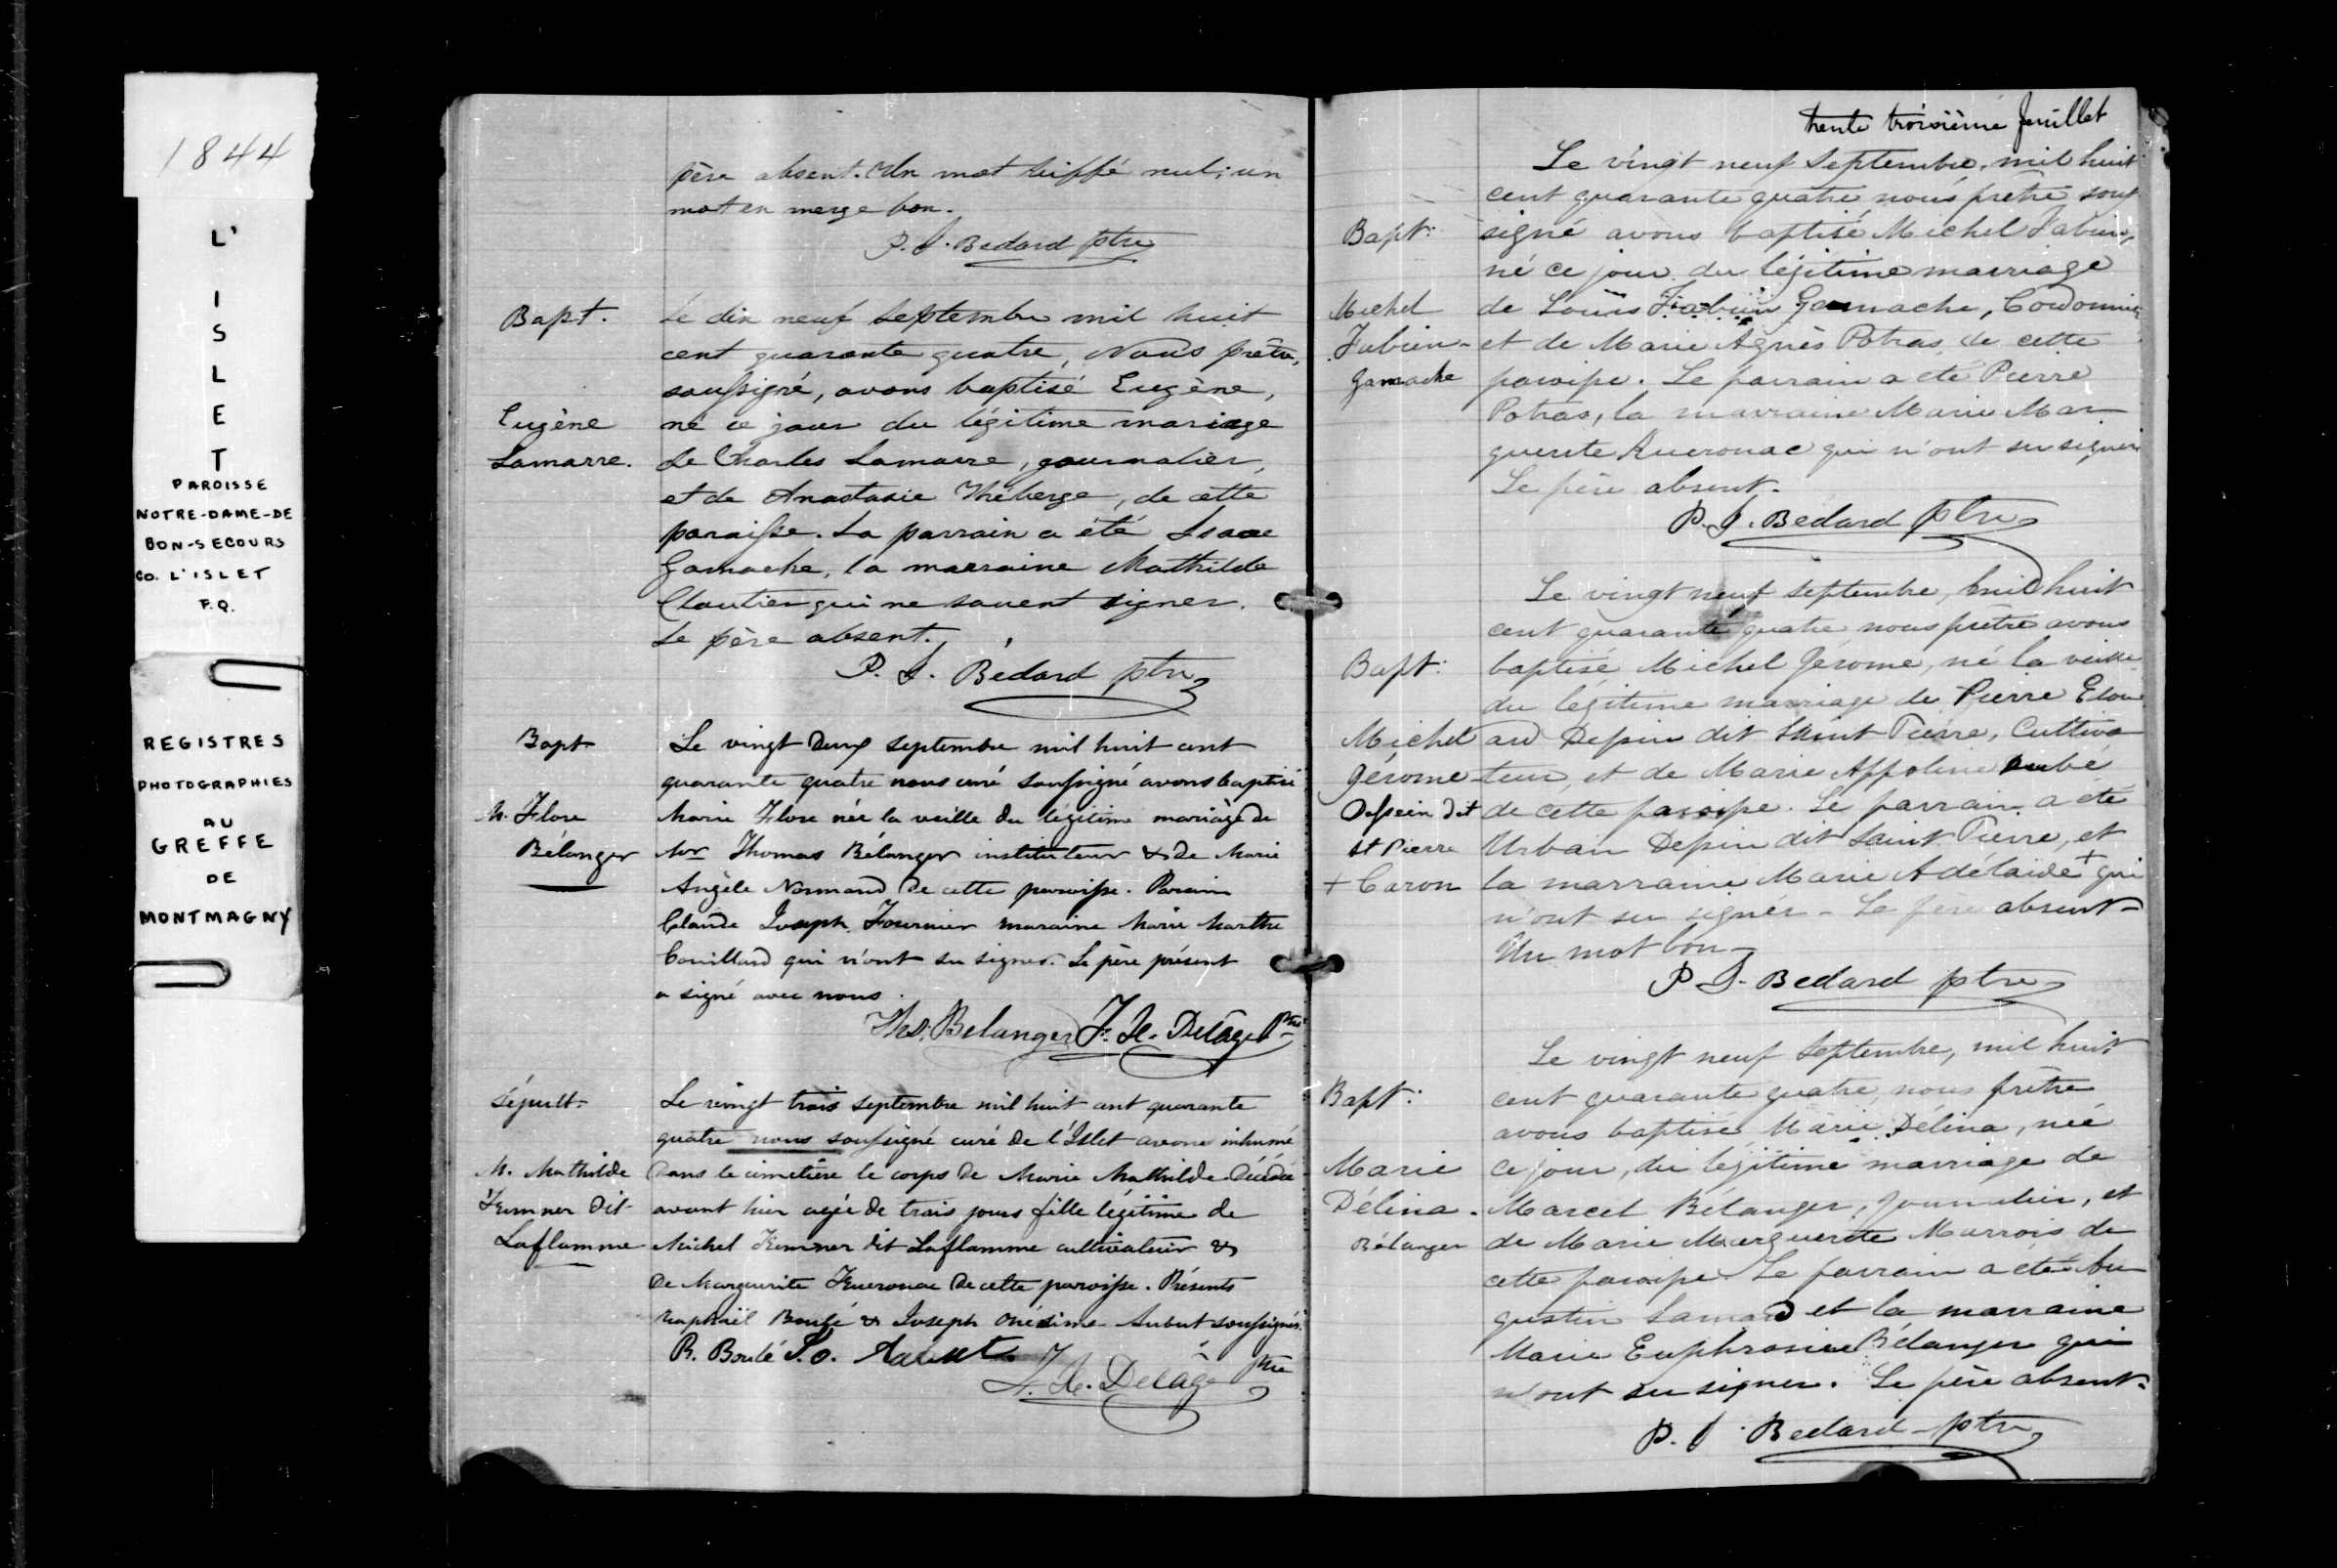 1844
L'
I
S
L
E
T
PAROISSE
NOTRE-DAME-DE
BON-SECOURS
CO. L'ISLET
P.Q.
REGISTRES
PHOTOGRAPHIES
AU
GREFFE
DE
MONTMAGNY
père absent. Un mot biffé nul; un
mot en merge bon.
P. J. Bedard ptre
Bapt.
Eugène
Lamarre.
Le dix neuf septembre mil huit
cent quarante quatre, Nous prêtre,
soussigné, avons baptisé Eugène,
né ce jour du légitime mariage
de Charles Lamarre, journalier,
et de Anastasie Théberge, de cette
paroisse. Le parrain a été Isaac
Gamache, la marraine Mathilde
Cloutier qui ne savent signer.
Le père absent.
P. J. Bédard ptre
Bapt
M. Flore
Bélanger
Le vingt deux septembre mil huit cent
quarante quatre nous curé soussigné avons baptisé
Marie Flore née la veille du légitime mariage de
Mr Thomas Bélanger instituteur & de Marie
Angèle Normand de cette paroisse. Parain
Claude Joseph Fournier maraine Marie Marthe
Couillard qui n'ont su signer. Le père présent
a signé avec nous.
Ths. Belanger F. X. Delâge Ptre
Sépult.
M. Mathilde
Kemner dit
Laflamme
Le vingt trois septembre mil huit cent quarante
quatre nous soussigné curé de l'Islet avons inhumé
dans le cimetière le corps de Marie Mathilde décédée
avant hier agée de trois jours fille légitime de
Michel Kemner dit Laflamme cultivateur &
de Marguerite Kuerouac de cette paroisse. Présents
Raphaël Boulé & Joseph Onésime Aubut soussignés.
R. Boulé J. O. Aubut
F. X. Delâge Ptre
trente troisième feuillet
Bapt:
Michel
Fabien
Gamache
Le vingt neuf Septembre, mil huit
cent quarante quatre, nous prêtre sous
signé avons baptisé Michel Fabien,
né ce jour du légitime marriage
de Louis Fabien Gamache, Cordonnier
et de Marie Agnès Potras de cette
paroisse. Le parrain a été Pierre
Potras, la marraine Marie Mar
guerite Kuerouac qui n'ont su signer
Le père absent.
P. J. Bédard ptre
Bapt:
Michel
Gérome
Dessein dit
St Pierre
+ Caron
Le vingt neuf septembre, mil huit
cent quarante quatre nous prêtre avons
baptisé Michel Gérome, né la veille
du légitime marriage de Pierre Edou
ard Dessein dit Saint Pierre, Cultiva
teur, et de Marie Appoline Aubé
de cette paroisse. Le parrain a été
Urbain Dessein dit Saint Pierre, et
la marraine Marie Adélaïde + qui
n'ont su signer - Le père absent -
Un mot bon -
P. J. Bedard ptre
Bapt:
Marie
Délina.
Bélanger
Le vingt neuf Septembre, mil huit
cent quarante quatre, nous prêtre
avons baptisé Marie Délina, née
ce jour, du légitime marriage de
Marcel Bélanger, journalier, et
de Marie Marguerite Marrois de
cette paroisse. Le parrain a été Au
gustin Lamard et la marraine
Marie Euphrosine Bélanger qui
n'ont su signer. Le père absent.
P. J. Bedard ptre